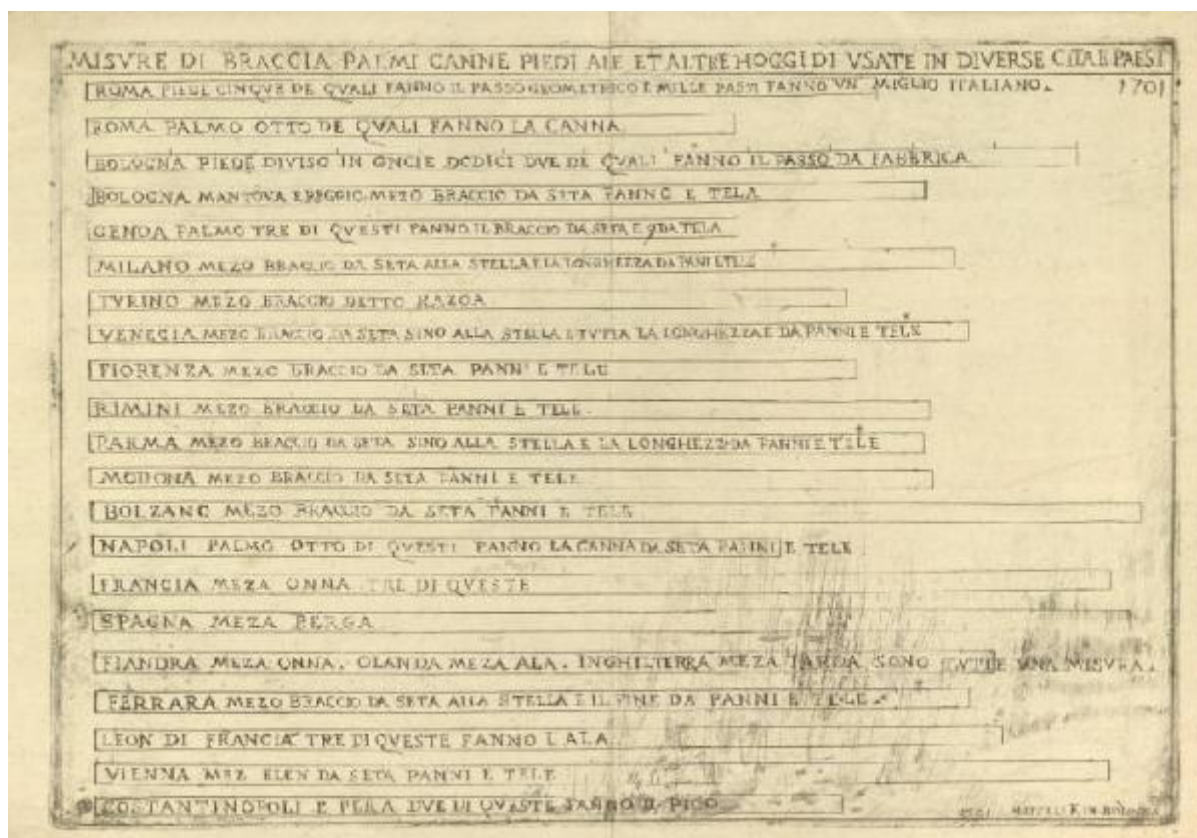 MISVRE DI BRACCIA PALMI CANNE PIEDI ALE ET ALTRE HOGGIDI VSATE IN DIVERSE CITA E PAESI
ROMA PIEDE CINQVE DE QVALI FANNO IL PASSO GEOMETRICO E MILLE PASSI FANNO VN MIGLIO ITALIANO. 1701
ROMA PALMO OTTO DE QVALI FANNO LA CANNA
BOLOGNA PIEDE DIVISO IN ONCIE DODICI DVE DE QVALI FANNO IL PASSO DA FABBRICA
BOLOGNA MANTOVA E REGGIO MEZO BRACCIO DA SETA PANNO E TELA
GENOA PALMO TRE DI QVESTI FANNO IL BRACCIO DA SETA E DA TELA
MILANO MEZO BRACCIO DA SETA ALLA STELLA E LA LONGHEZZA DA PANI E TELE
TVRINO MEZO BRACCIO DETTO RAZOA
VENECIA MEZO BRACCIO DA SETA SINO ALLA STELLA E TVTTA LA LONGHEZZA E DA PANNI E TELE
FIORENZA MEZO BRACCIO DA SETA PANNI E TELE
RIMINI MEZO BRACCIO DA SETA PANNI E TELE
PARMA MEZO BRACCIO DA SETA SINO ALLA STELLA E LA LONGHEZZA DA PANNI E TELE
MODONA MEZO BRACCIO DA SETA PANNI E TELE
BOLZANO MEZO BRACCIO DA SETA PANNI E TELE
NAPOLI PALMO OTTO DI QVESTI FANNO LA CANNA DA SETA PANNI E TELE
FRANCIA MEZA ONNA TRE DI QVESTE
SPAGNA MEZA BERGA
FIANDRA MEZA ONNA. OLANDA MEZA ALA. INGHILTERRA MEZA IARDA SONO TVTTE VNA MISVRA.
FERRARA MEZO BRACCIO DA SETA ALLA STELLA E IL FINE DA PANNI E TELE
LEON DI FRANCIA TRE DI QVESTE FANNO L ALA
VIENNA MEZ ELEN DA SETA PANNI E TELE
COSTANTINOPOLI E PERA DVE DI QVESTE FANNO IL PICO
IN BOLOGNA